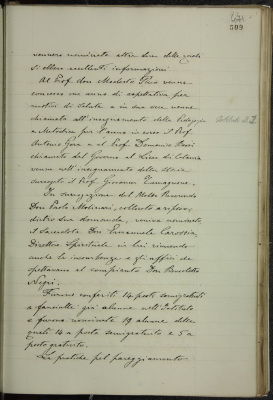 509
vennero nominate altre due delle quali
si ebbero eccellenti informazioni.
Al Prof. don Modesto venne
concesso un anno di aspettativa per
motivi di salute e in sua vece venne
chiamato all'insegnamento della Pedagogia
e Metodica per l'anno in corso il Prof.
Antonio e il Prof. Domenico
chiamato dal Governo al Liceo di Catania
venne nell'insegnamento della Storia
surrogato il Prof. Giovanni
In surrogazione del Molto Reverendo
Don Paolo Molinari, collocato a riposo,
dietro sua domanda, venne nominato
il Sacerdote Don Emanuele
Direttore Spirituale in lui riunendo
anche le incombenze e gli uffici che
spettavano al compianto Don Benedetto
Negri.
Furono conferiti 14 posti semigratuiti
a fanciulle già alunne nell'Istituto
e furono nominate 19 alunne delle
quali 14 a posto semigratuito e 5 a
posto gratuito.
Le pratiche pel pareggiamento